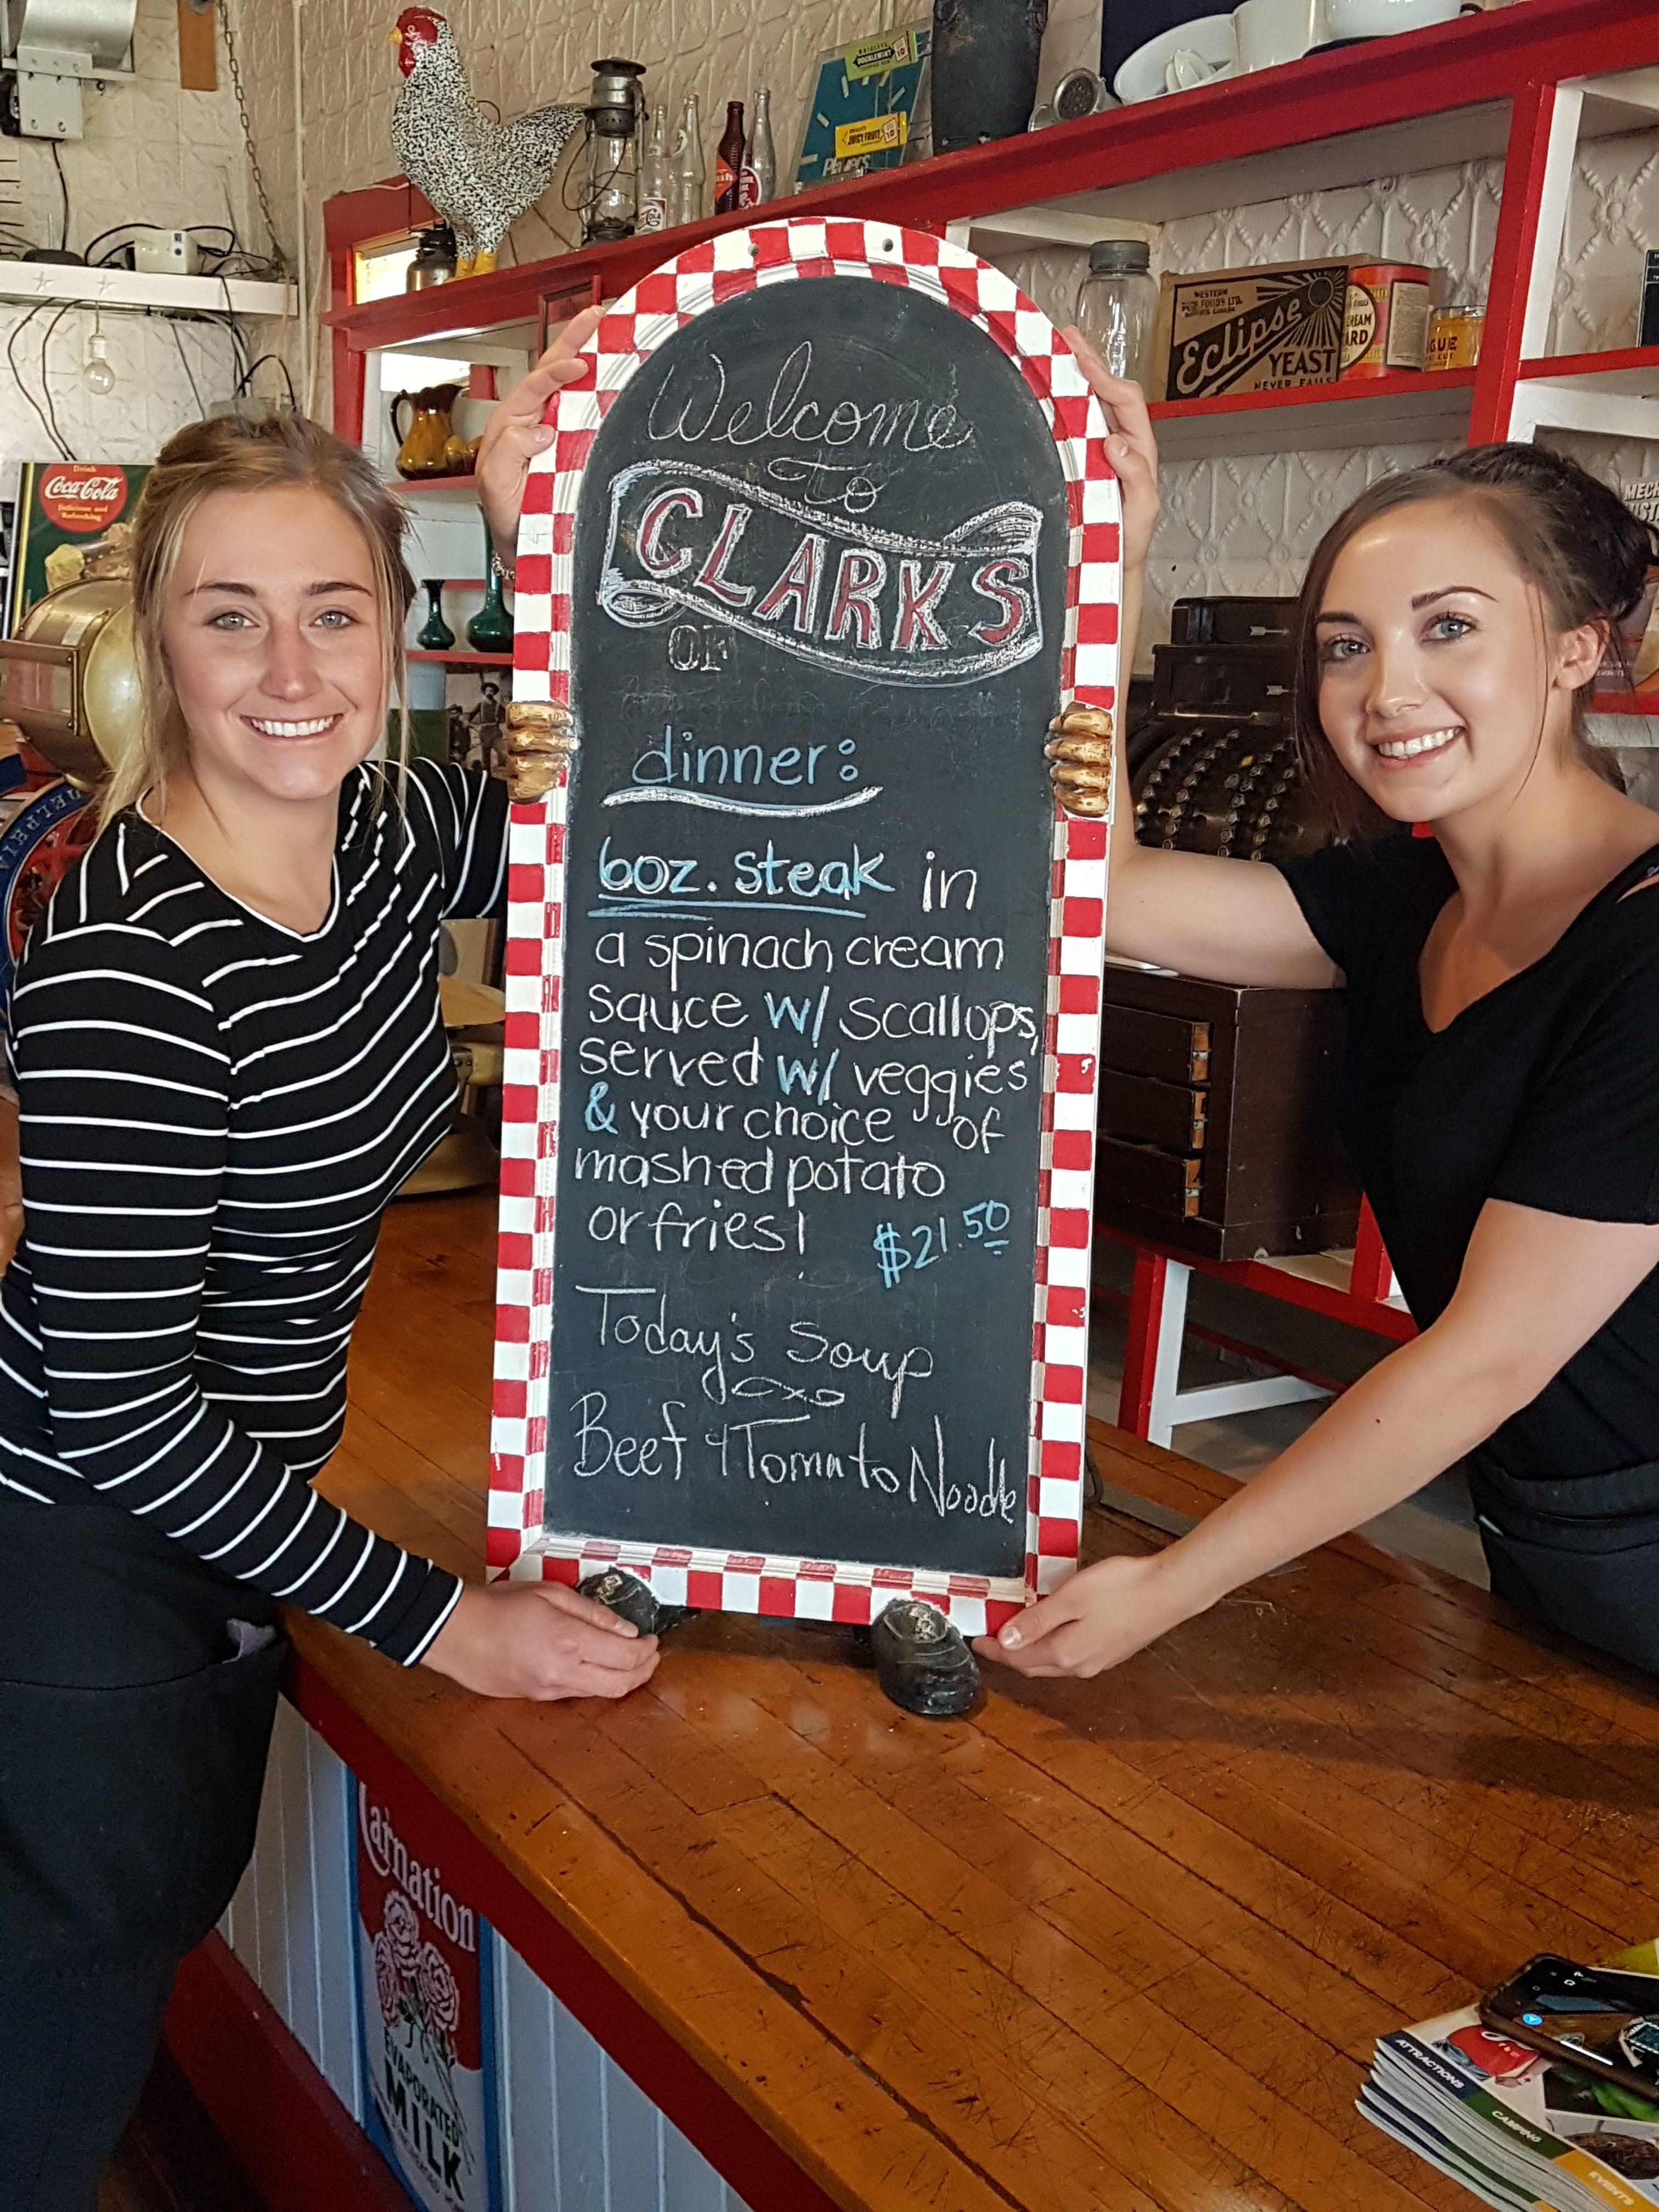 WRIGLEY'S
DOUBLEMINT
10
JUICY FRUIT
10
WESTERN
PURE FOODS LTD.
Eclipse
YEAST
NEVER FAILS
Drink
Coca-Cola
Delicious and
Refreshing
Welcome
to
CLARKS
OF
dinner:
6oz. steak in
a spinach cream
sauce w/ scallops,
served w/ veggies
& your choice of
mashed potato
or fries!
$21.50
Today's Soup
Beef & Tomato Noodle
Carnation
EVAPORATED
MILK
ATTRACTIONS
CAMPING
EVENTS